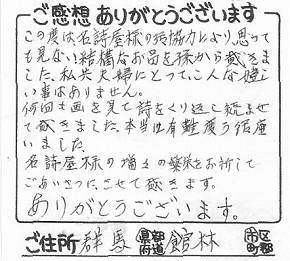 ご感想 ありがとうございます
この度は名詩屋様の御協力により、思って
も見ない結構なお品を孫から戴きま
した、私共夫婦にとって、こんな嬉し
い事はありません。
何回も画を見て詩をくり返し読ませ
て戴きました、本当に有難度う御座
いました。
名詩屋様の増々の繁栄をお祈して
ごあいさつに、させて戴きます。
ありがとうございます。
ご住所 群馬 都道府県 館林 市区町郡